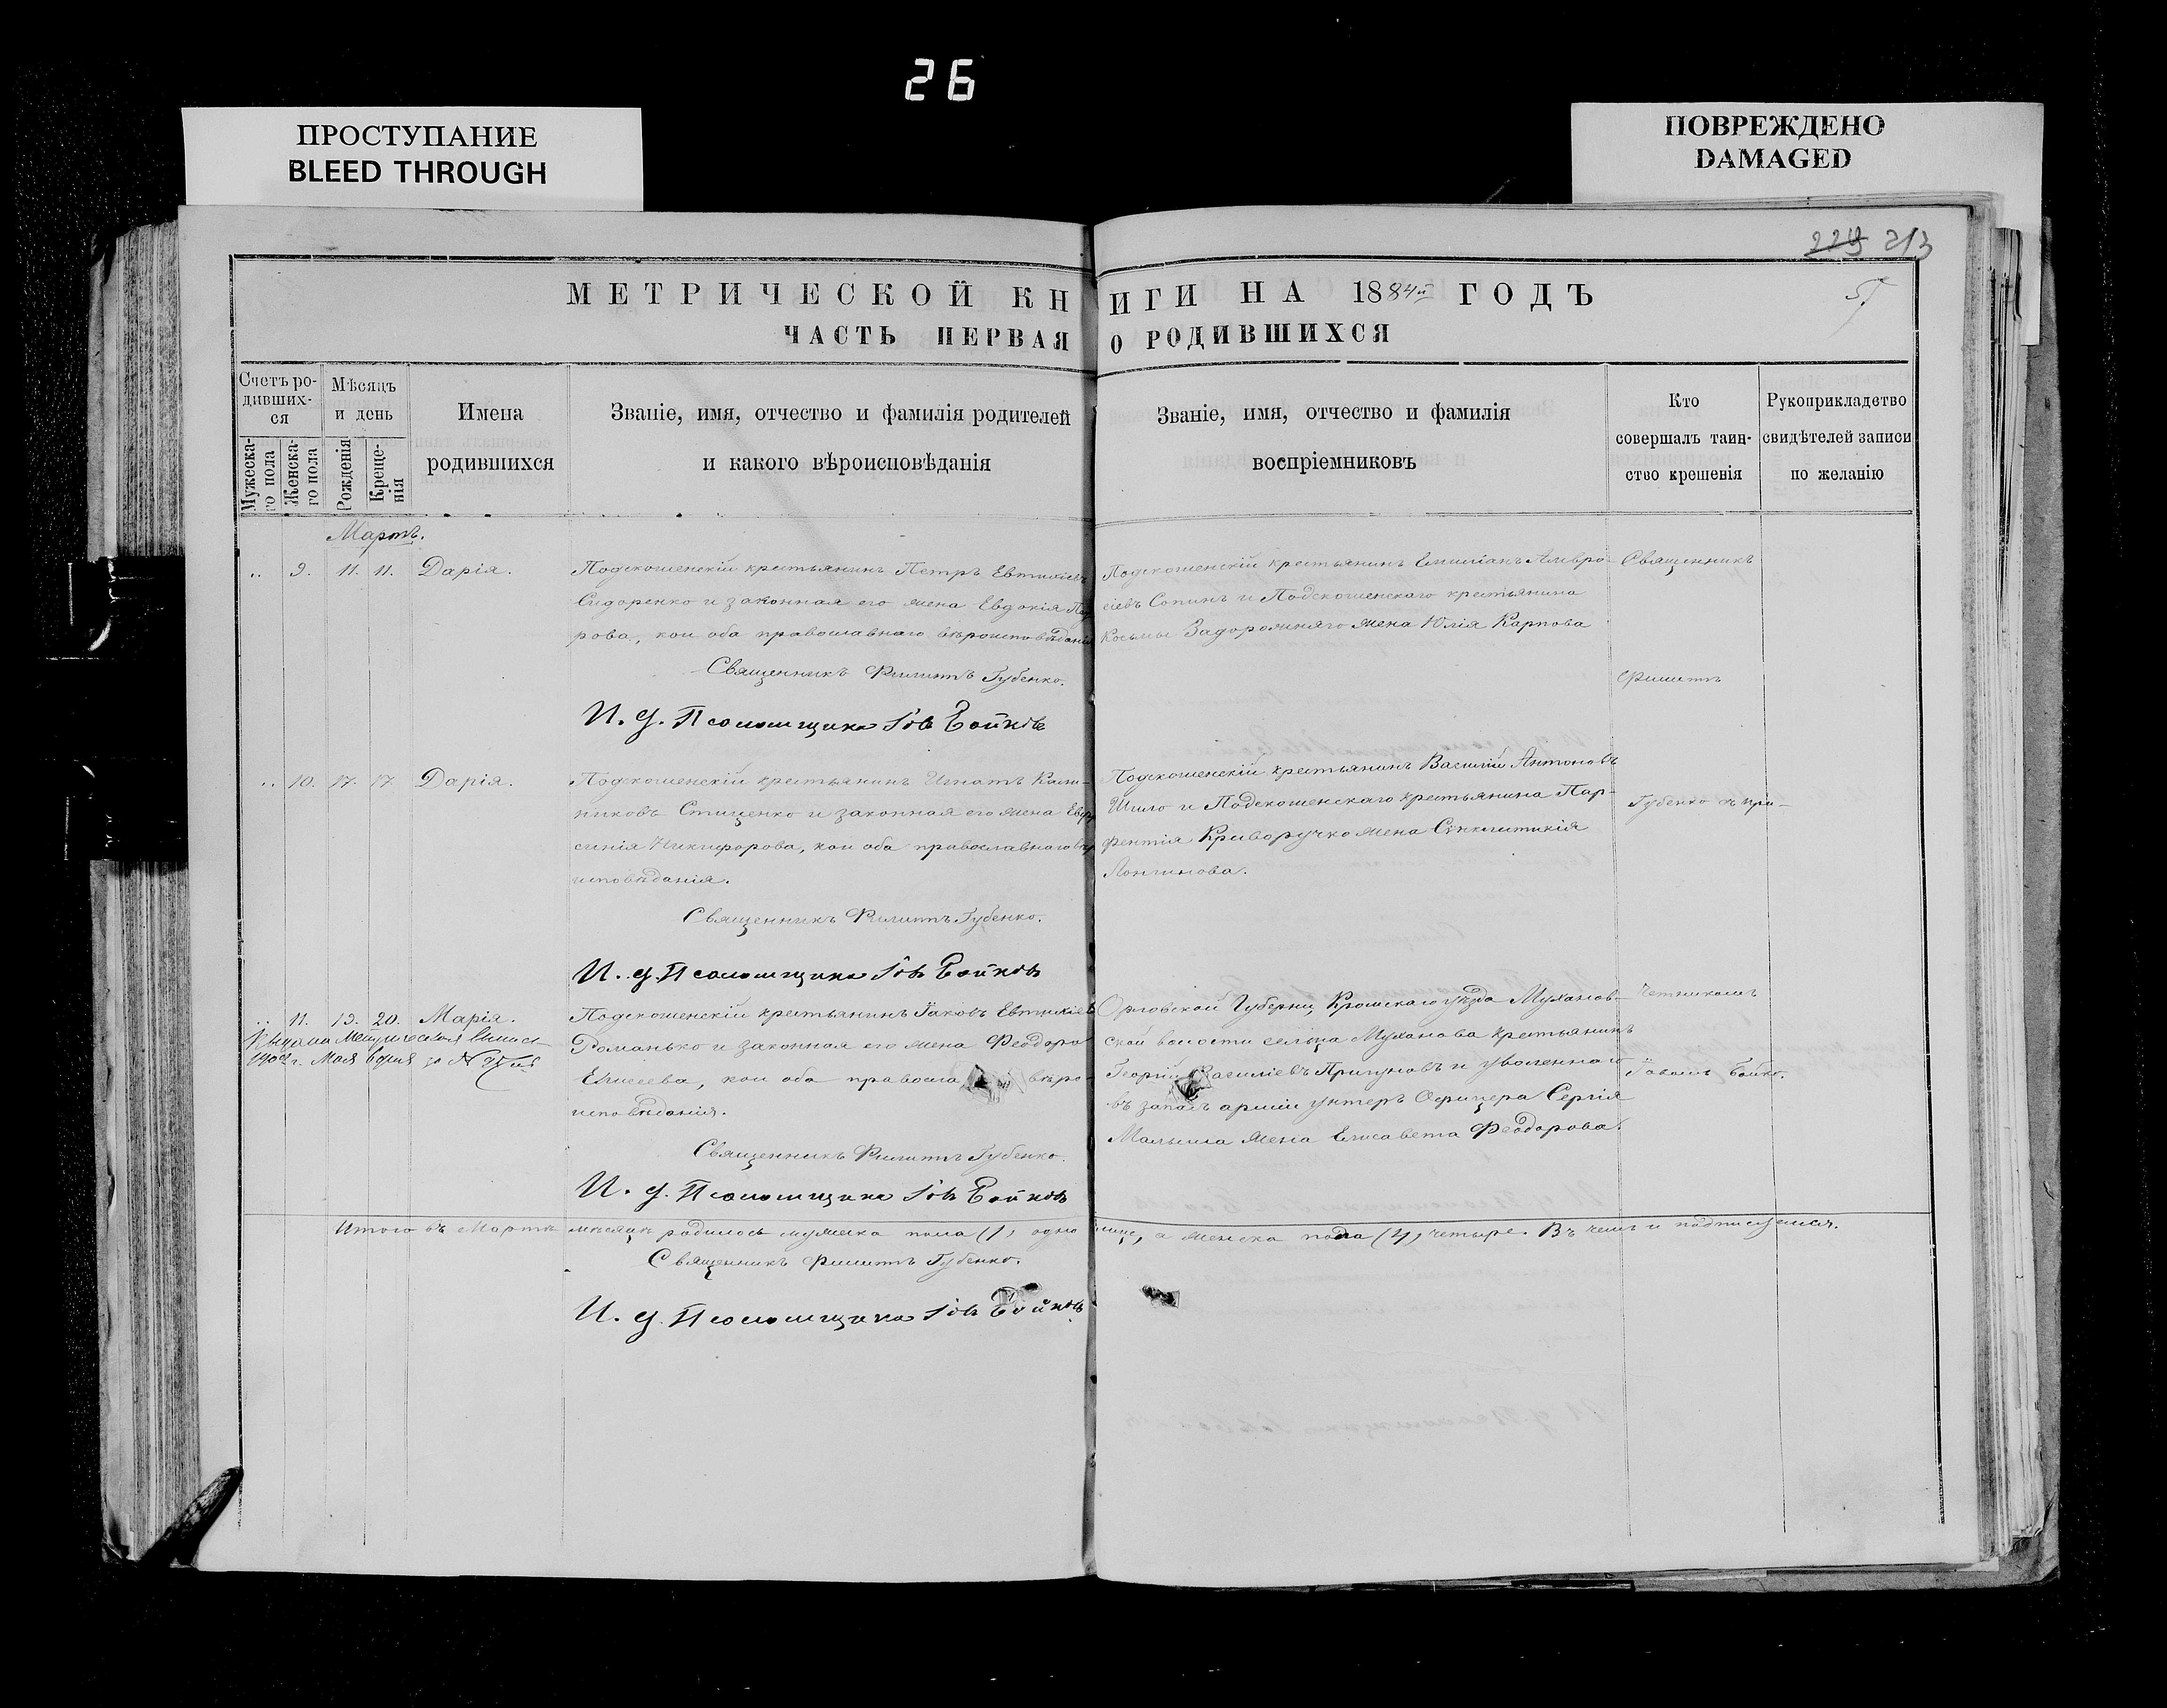 26
ПРОСТУПАНИЕ
BLEED THROUGH
ПОВРЕЖДЕНО
DAMAGED
229 213
МЕТРИЧЕСКОЙ КНИГИ НА 1884й ГОДЪ
ЧАСТЬ ПЕРВАЯ О РОДИВШИХСЯ
Счетъ ро-
дивших-
ся
Мужеска-
го пола
Женска-
го пола
Мѣсяцъ
и день
Рожденія
Креще-
нія
Имена
родившихся
Званіе, имя, отчество и фамилія родителей
и какого вѣроисповѣданія
Званіе, имя, отчество и фамилія
воспріемниковъ
Кто
совершалъ таин-
ство крещенія
Рукоприкладство
свидѣтелей записи
по желанію
Мартъ.
9. 11. 11. Дарія.
Подокошенскій крестьянинъ Петръ Евтихіевъ
Сидоренко и законная его жена Евдокія
рова, кои оба православнаго вѣроисповѣданія
Священникъ Филиппъ Губенко.
И. д. Псаломщика Іовъ Бойковъ
Подокошенскій крестьянинъ Емиліанъ Амвро-
сіевъ Сопинъ и Подокошенскаго крестьянина
Косьмы Задорожняго жена Юлія Карпова
Священникъ
Филиппъ
10. 17. 17. Дарія.
Подокошенскій крестьянинъ Игнатъ Кали-
никовъ Стиценко и законная его жена Евфро
синія Никифорова, кои оба православнаго вѣро
исповѣданія.
Священникъ Филиппъ Губенко.
И. д. Псаломщика Іовъ Бойковъ
Подокошенскій крестьянинъ Василій Антоновъ
Шило и Подокошенскаго крестьянина Пар-
фентія Криворучко жена Синклитикія
Лонгинова.
Губенко съ при-
11. 19. 20. Марія.
1902 г. Мая
Подокошенскій крестьянинъ Іаковъ Евтихіевъ
Романько и законная его жена Феодора
Елисеева, кои оба правосла вѣро-
исповѣданія.
Священникъ Филиппъ Губенко.
И. д. Псаломщика Іовъ Бойковъ
Орловской Губерніи, Кромскаго уѣзда Муханов-
ской волости сельца Муханова крестьянинъ
Георгій Василіевъ Пригуновъ и уволеннаго
въ запасъ арміи унтеръ Офицера Сергія
Малыша жена Елисавета Феодорова.
четникомъ
Іовомъ Бойко.
Итого въ Мартѣ мѣсяцѣ родилось мужеска пола (1) одно лице, а женска пола (4) четыре. Въ чемъ и подписуемся.
Священникъ Филиппъ Губенко.
И. д. Псаломщика Іовъ Бойковъ